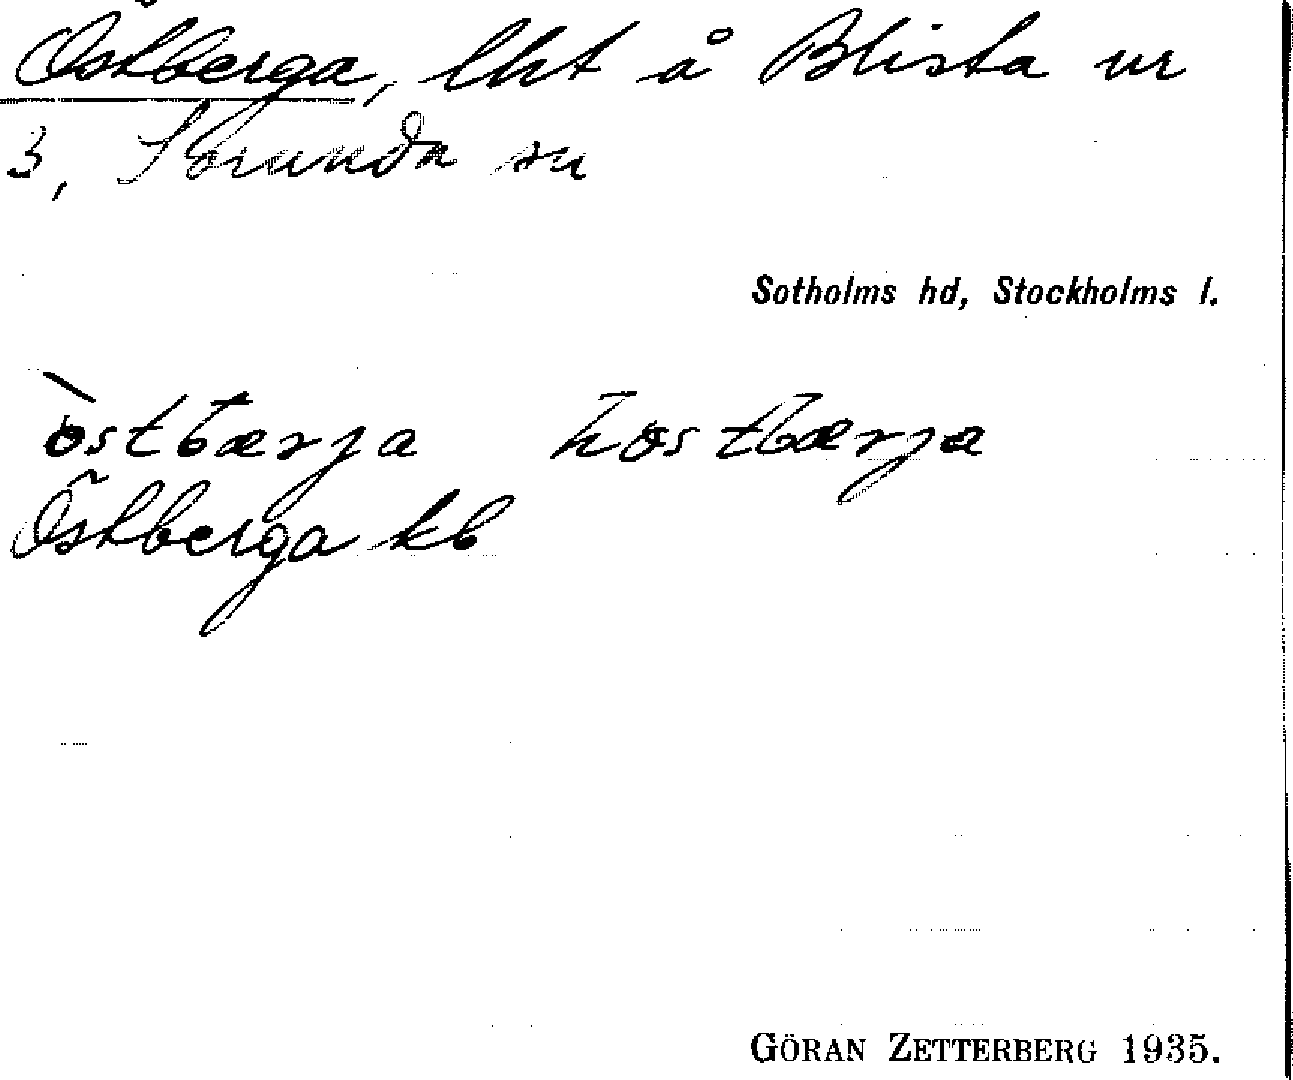 Östberga, lht å Blista nr
3, Sorunda sn
Sotholms hd, Stockholms l.
östbærja hostbærja
Östberga kb
GÖRAN ZETTERBERG 1935.